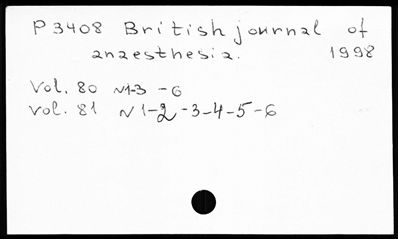 P 3408 British journal of
anaesthesia. 1998
Vol. 80 N1-3 -6
Vol. 81 N 1-2-3-4-5-6